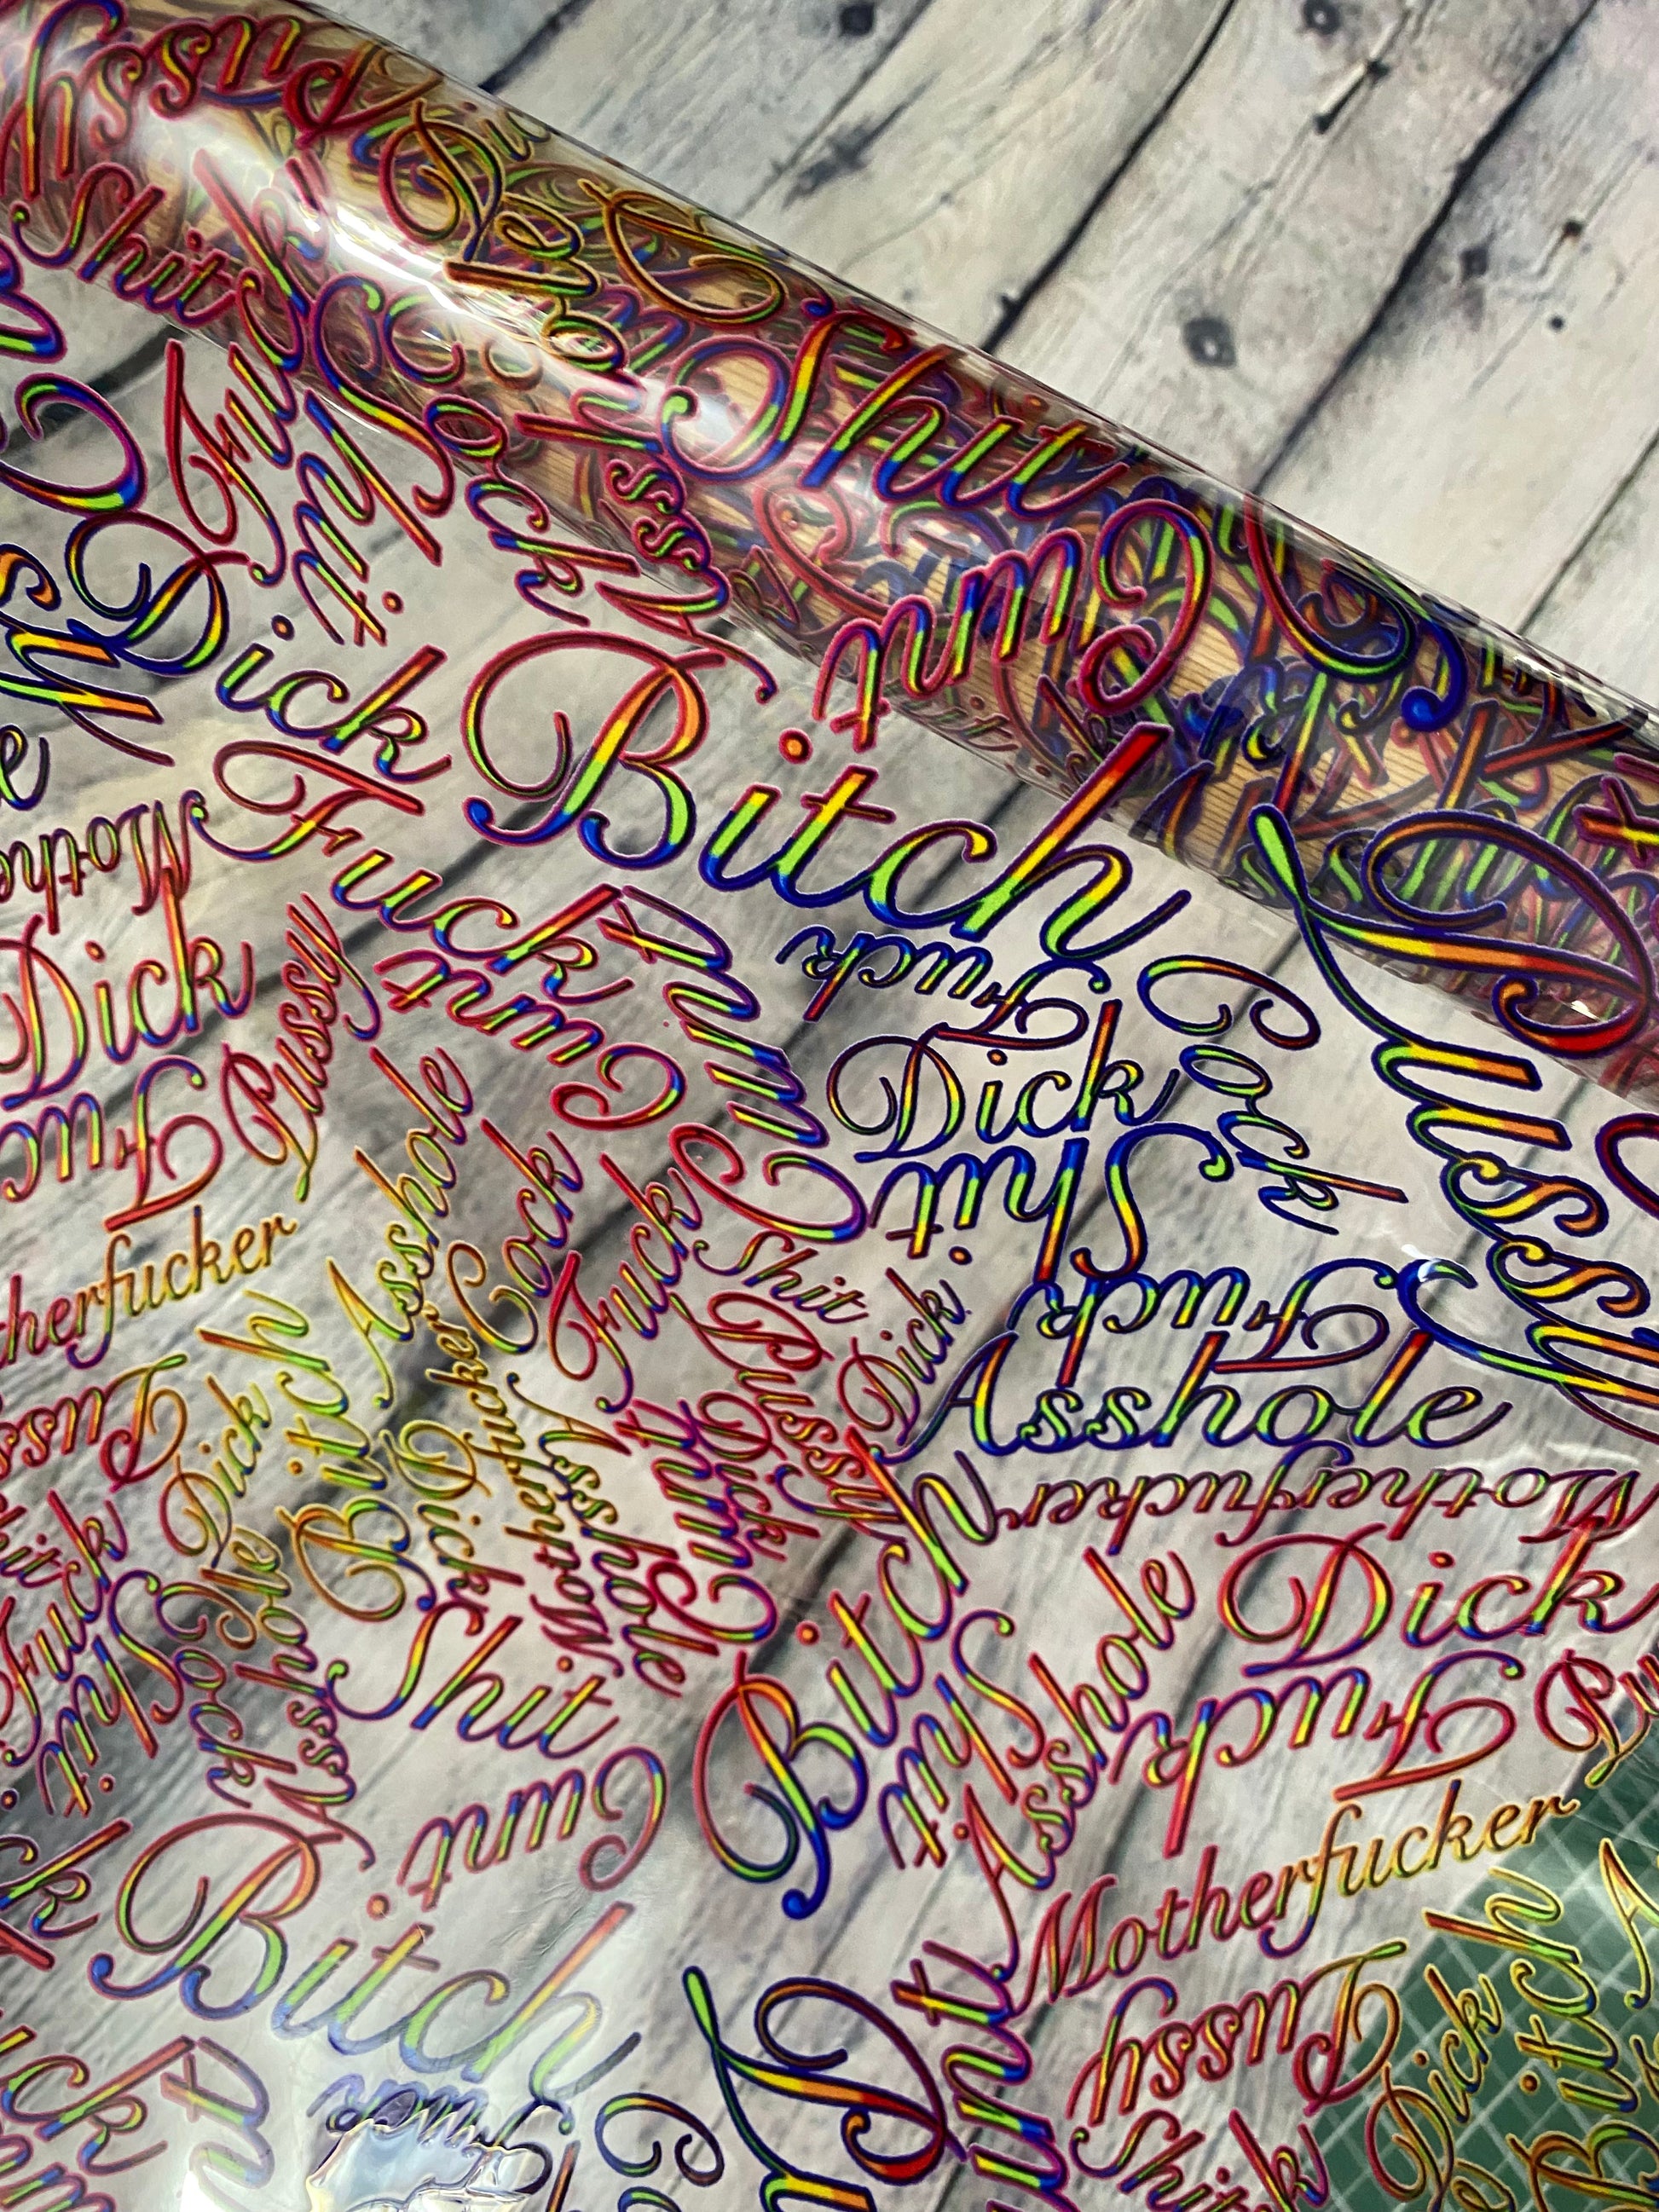 Pussy
Shit
Fuck
Shit
Cock
Shit
Cunt
Dick
Fuck
Bitch
Asshole
Dick
Pussy
Cunt
Cunt
Fuck
Dick
Cock
Shit
Pussy
Fuck
Asshole
Motherfucker
Asshole
Cock
Fuck
Shit
Dick
Pussy
Bitch
Dick
Motherfucker
Asshole
Dick
Shit
Cunt
Dick
Bitch
Shit
Asshole
Dick
Fuck
Fuck
Shit
Cock
Asshole
Cunt
Motherfucker
Bitch
Pussy
Dick
Bitch
Cunt
Shit